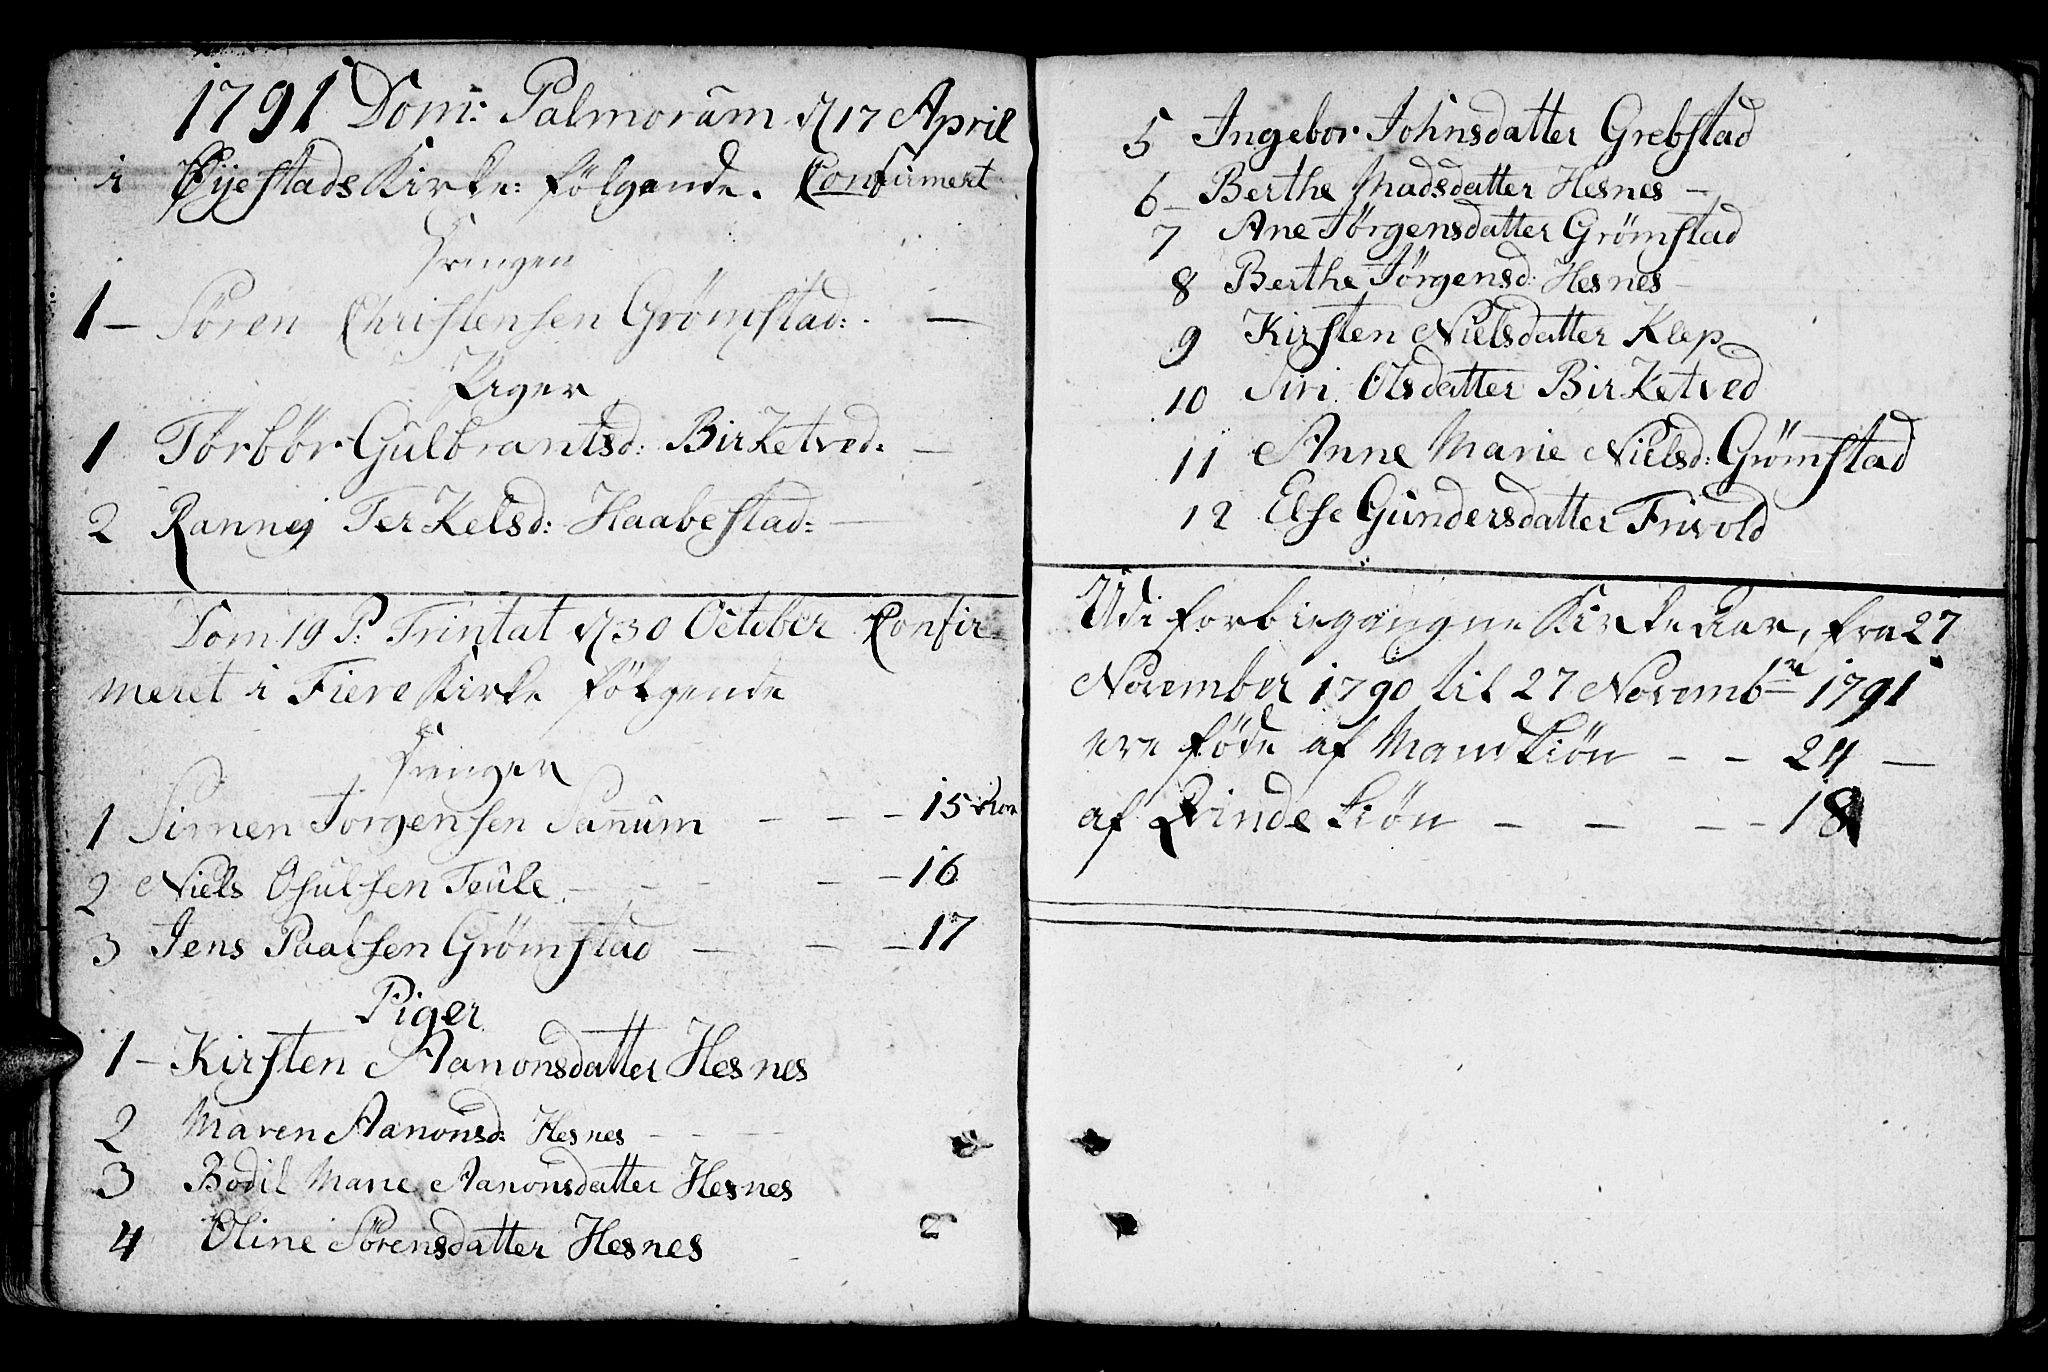 1791 Dom: Palmorum d 17 April
i Øyestads Kirke: følgende. Confirmert
Drengen
1 – Søren Christensen Grømstad: –
Piger
1 Torbør Gulbrantsd: Birketved: –
2 Ranney Terkelsd: Haabestad: –
Dom 19 P: Trintat d 30 October Confir
meret i Fiere Kirke følgende
Drenger
1 Simen Jørgensen Sanum – – – 15
2 Niels Osulsen Teule – – – – – 16
3 Jens Paalsen Grømstad – – – 17
Piger
1 – Kirsten Aanonsdatter Hesnes
2 Maren Aanonsd: Hesnes – – –
3 Bodil Marie Aanonsdatter Hesnes
4 Oline Sørensdatter Hesnes
5 Ingebor Johnsdatter Grebstad
6 – Berthe Madsdatter Hesnes –
7 Ane Jørgensdatter Grømstad
8 Berthe Jørgensd: Hesnes –
9 Kirsten Nielsdatter Klep
10 Siri Olsdatter Birketved
11 Anne Marie Nielsd: Grømstad
12 Else Gundersdatter Frivold
Udi forbiegangne Kirke Aar, fra 27
November 1790 til 27 Novembr 1791
ere føde af Mandkiøn – – 24 –
af Qvindekiøn – – – – 18